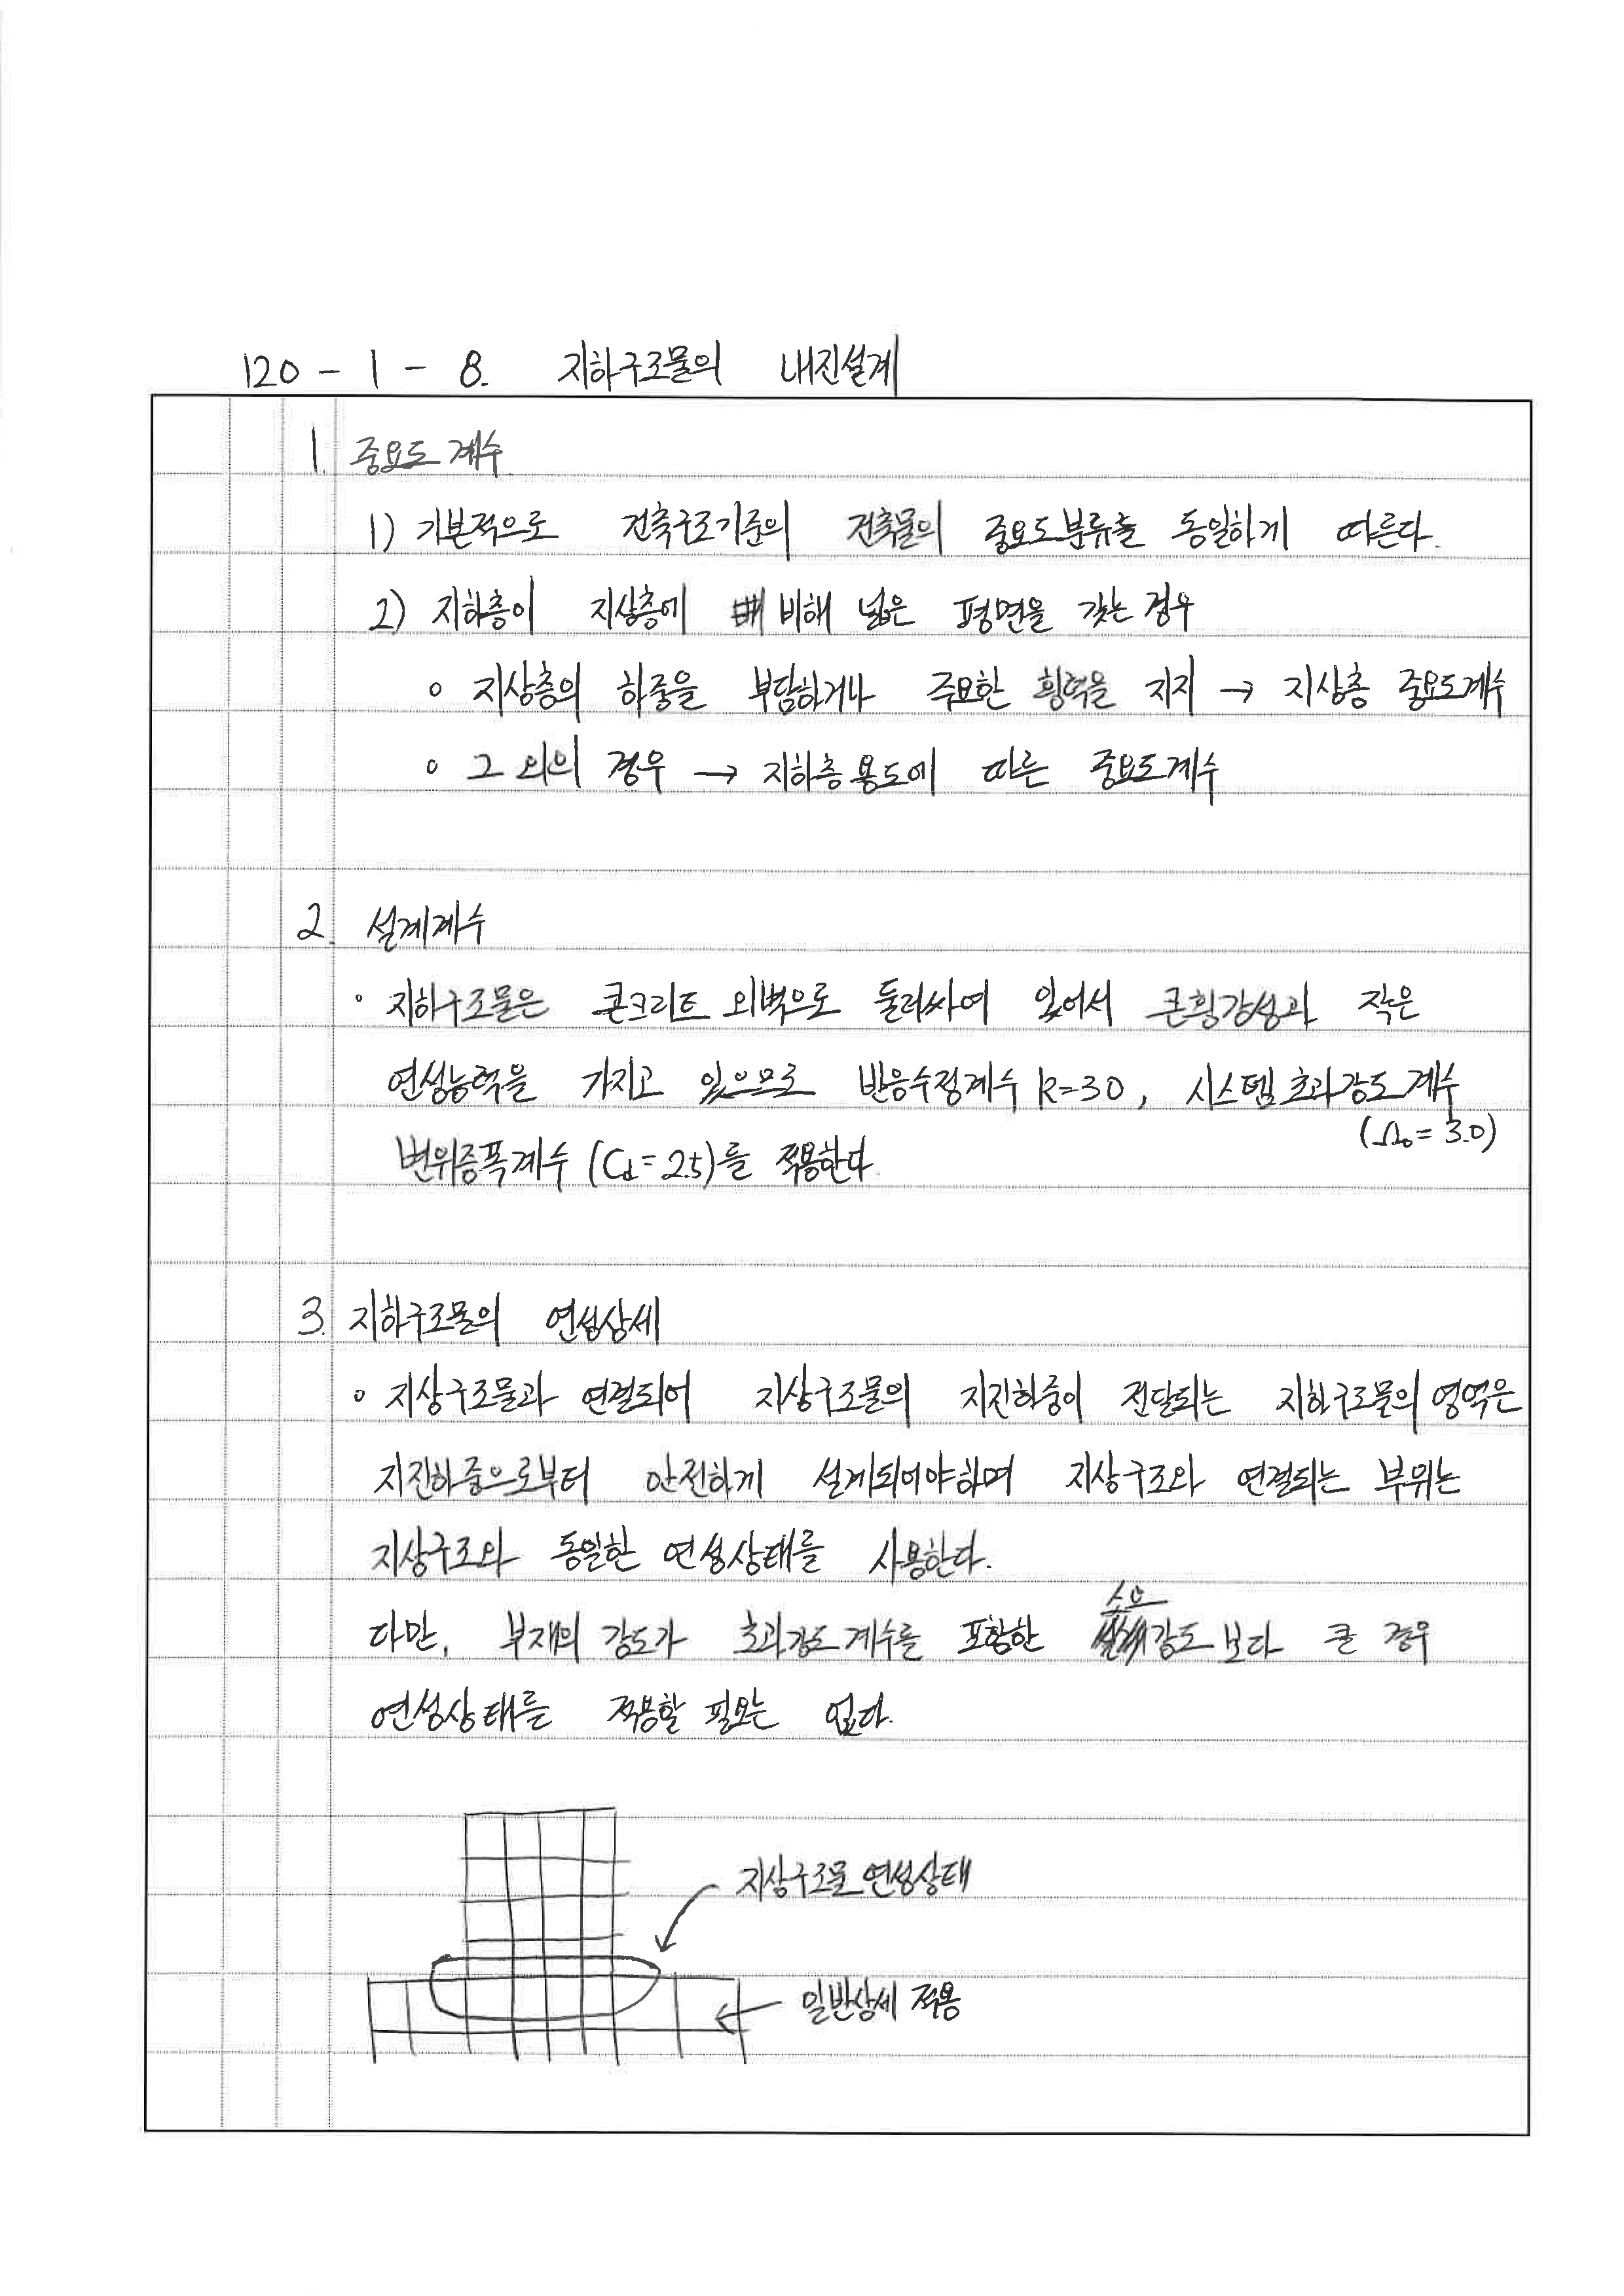 120 - 1 - 8. 지하구조물의 내진설계
1. 중요도 계수
1) 기본적으로 건축구조기준의 건축물의 중요도분류를 동일하게 따른다.
2) 지하층이 지상층에 비해 넓은 평면을 갖는 경우
○ 지상층의 하중을 부담하거나 주요한 횡력을 지지 → 지상층 중요도계수
○ 그 외의 경우 → 지하층 용도에 따른 중요도계수
2. 설계계수
◦ 지하구조물은 콘크리트 외벽으로 둘러싸여 있어서 큰 횡강성과 작은
연성능력을 가지고 있으므로 반응수정계수 R=3.0, 시스템 초과강도 계수
(Ω₀ = 3.0)
변위증폭계수 (Cd = 2.5)를 적용한다.
3. 지하구조물의 연성상세
○ 지상구조물과 연결되어 지상구조물의 지진하중이 전달되는 지하구조물의 영역은
지진하중으로부터 안전하게 설계되어야하며 지상구조와 연결되는 부위는
지상구조와 동일한 연성상태를 사용한다.
다만, 부재의 강도가 초과강도 계수를 포함한 소요강도 보다 큰 경우
연성상태를 적용할 필요는 없다.
지상구조물 연성상태
일반상세 적용